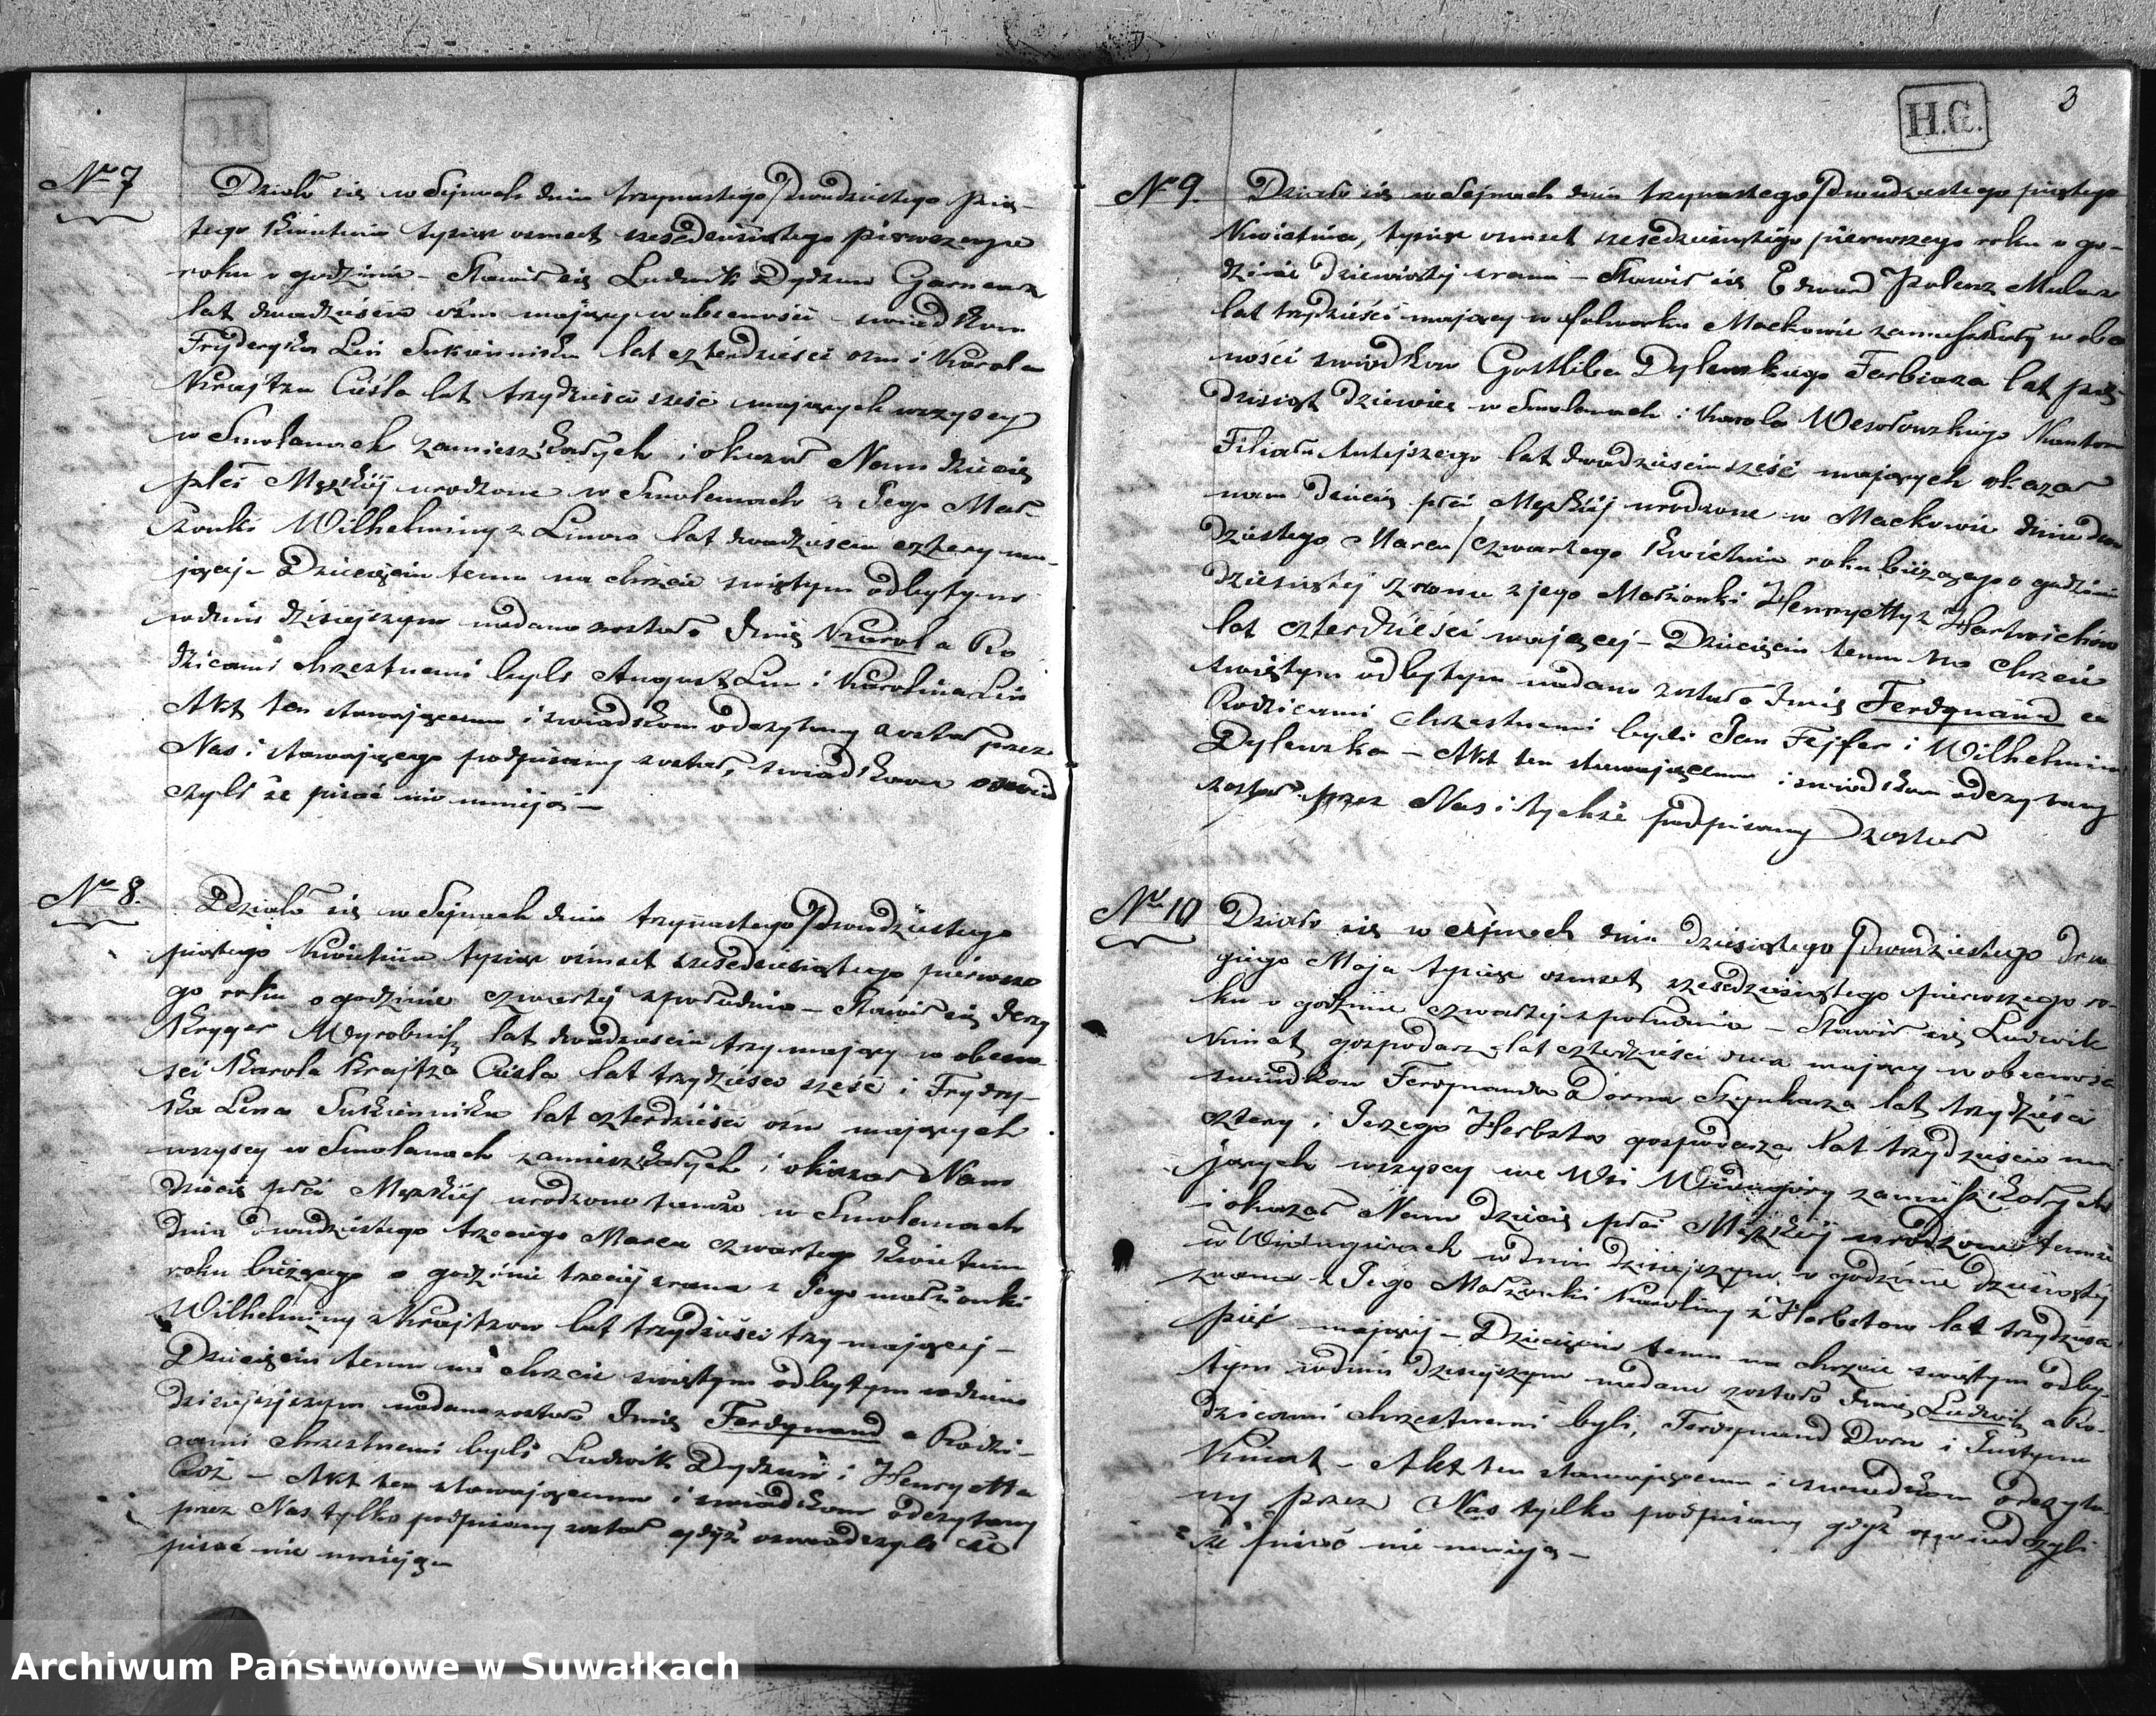 H.G.
3
No 7
Działo się w Sejnach dnia trzynastego/dwudziestego pią-
tego Kwietnia tysiąc osmset sześćdziesiątego pierwszego
roku o godzinie – Stawił się Ludwik Dydzun Garncarz
lat dwadzieścia ośm mający w obecności swiadkow
Fryderyka Lin Sukiennika lat czterdzieści osm i Karola
Krajtza Cieśla lat trzydzieści sześć mających wszyscy
w Smolanach zamieszkałych i okazał Nam dziecię
płci Męzkiéj urodzone w Smolanach z Jego Mał-
żonki Wilhelminy z Linow lat dwadzieścia cztery ma-
jącej – Dziecięciu temu na chrzcie swiętym odbytym
w dniu dzisiejszym nadane zostało Imię Karol a Ro
dzicami chrzestnemi byli August Lin i Karolina Lin
Akt ten stawającemu i swiadkom odczytany został przez
Nas i stawającego podpisany został, swiadkowie oswiad
czyli że pisać nie umieją –
No 8.
Działo się w Sejnach dnia trzynastego/dwudziestego
piątego Kwietnia tysiąc ośmset sześćdziesiątego pierwsze
go roku o godzinie czwartéj z południa – Stawił się Jerzy
Kryger Wyrobnik lat dwadzieścia trzy mający w obecno
ści Karola Krajtza Cieśla lat trzydzieści sześć i Frydry-
ka Lina Sukiennika lat czterdzieści ośm mających
wszyscy w Smolanach zamieszkałych i okazał Nam
dziecię płci Męzkiéj urodzone tamże w Smolanach
dnia dwudziestego trzeciego Marca czwartego Kwietnia
roku bieżącego o godzinie trzeciéj z rana z Jego małżonki
Wilhelminy z Krajtzow lat trzydzieści trzy mającej –
Dziecięciu temu na chrzcie swiętym odbytym w dniu
dzisiejszym nadane zostało Imię Ferdynand a Rodzi-
cami chrzestnemi byli Ludwik Dydzun i Henryetta
– Akt ten stawającemu i swiadkom odczytany
przez Nas tylko podpisany został gdyż oswiadczyli że
pisać nie umieją –
No 9.
Działo się w Sejnach dnia trzynastego/dwudziestego piątego
Kwietnia, tysiąc osmset sześćdziesiątego pierwszego roku o go-
dzinie dziewiątéj z rana – Stawił się Edward Polenz Mularz
lat trzydzieści mający w folwarku Maćkowie zamieszkały w obec
ności swiadkow Gottliba Dylewskiego Farbiarza lat pięć-
dziesiąt dziewięć w Smolanach i Karola Wesołowskiego Kantora
Filiału tutejszego lat dwadzieścia sześć mających okazał
nam dziecię płci Męzkiéj urodzone w Maćkowie dnia dwu
dziestego Marca/czwartego Kwietnia roku bieżącego o godzinie
dziesiątéj z rana z jego Małżonki Henryetty z Hartwichow
lat czterdzieści mającej – Dziecięciu temu na chrzcie
swiętym odbytym nadane zostało Imię Ferdynand a
Rodzicami chrzestnemi byli Jan Fejfer i Wilhelmina
Dylewska – Akt ten stawającemu i swiadkom odczytany
został przez Nas i tychże podpisany został
No 10
Działo się w Sejnach dnia dziesiątego/dwudziestego dru
giego Maja tysiąc osmset sześćdziesiątego pierwszego ro-
ku o godzinie czwartéj z południa – Stawił się Ludwik
Kiniat gospodarz lat czterdzieści dwa mający w obecności
swiadkow Ferdynanda Dorna Szynkarza lat trzydzieści
cztery i Jerzego Herbsta gospodarza lat trzydzieście ma
jących wszyscy we Wsi Widugiery zamieszkałych
i okazał Nam dziecię płci Męzkiéj urodzone tamże
w Widugierach w dniu dzisiejszym o godzinie dziewiątéj
z rana z Jego Małżonki Karoliny z Herbstow lat trzydzieści
pięć mającéj – Dziecięciu temu na chrzcie swiętym odby-
tym w dniu dzisiejszym nadane zostało Imię Ludwik a Ro-
dzicami chrzestnemi byli, Ferdynand Dorn i Justyna
Kiniat – Akt ten stawającemu i swiadkom odczyta-
ny przez Nas tylko podpisany gdyż oswiadczyli
że pisać nie umieją –
Archiwum Państwowe w Suwałkach